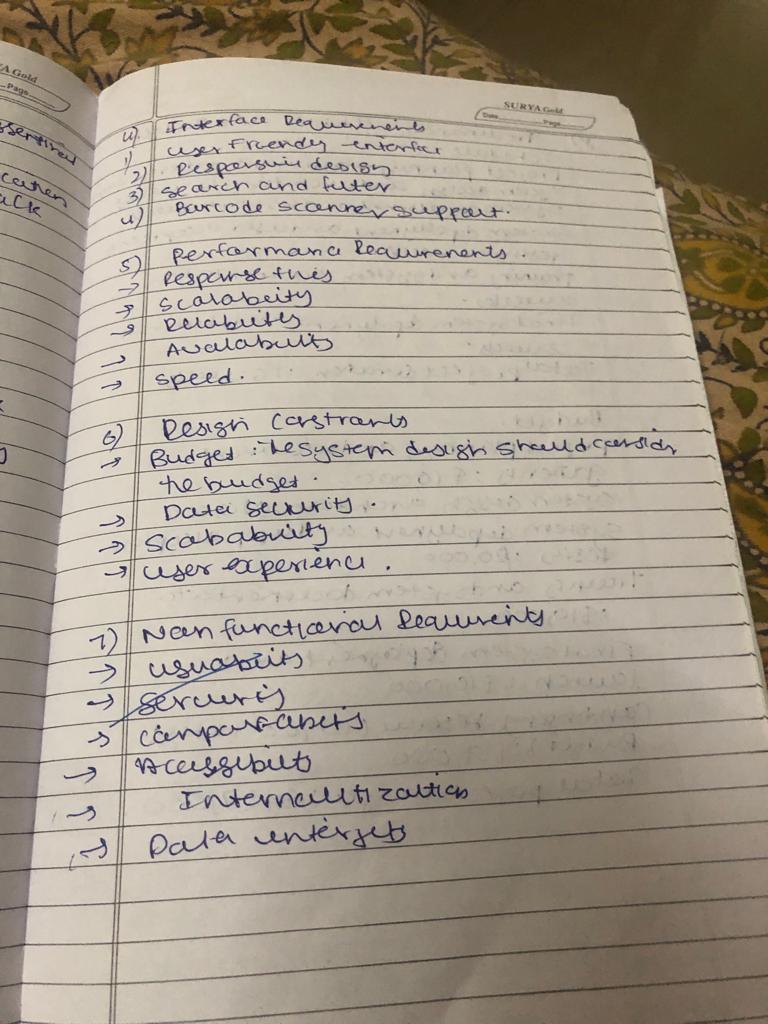 YA Gold
Page
ssential
cation
ack
SURYA Gold
Date Page
4) Interface Requirements
1) User Friendly interface
2) Responsive design
3) Search and futer
4) Barcode scanner support.
5) Performance Requirements.
→ Response
→ Scalability
→ Reliability
→ Availability
→ Speed.
6) Design Constraints
→ Budget : The system design should consider
the budget.
→ Data security.
→ Scalability
→ User experience.
7) Non functional Requirements.
→ Usability
→ Security
→ Compatability
→ Accessibility
→ Internalization
→ Data